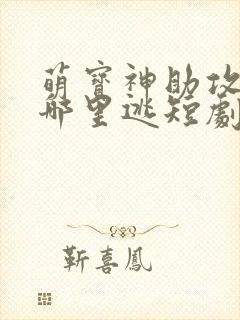 萌寶神助攻
哪里逃短劇
靳喜鳳